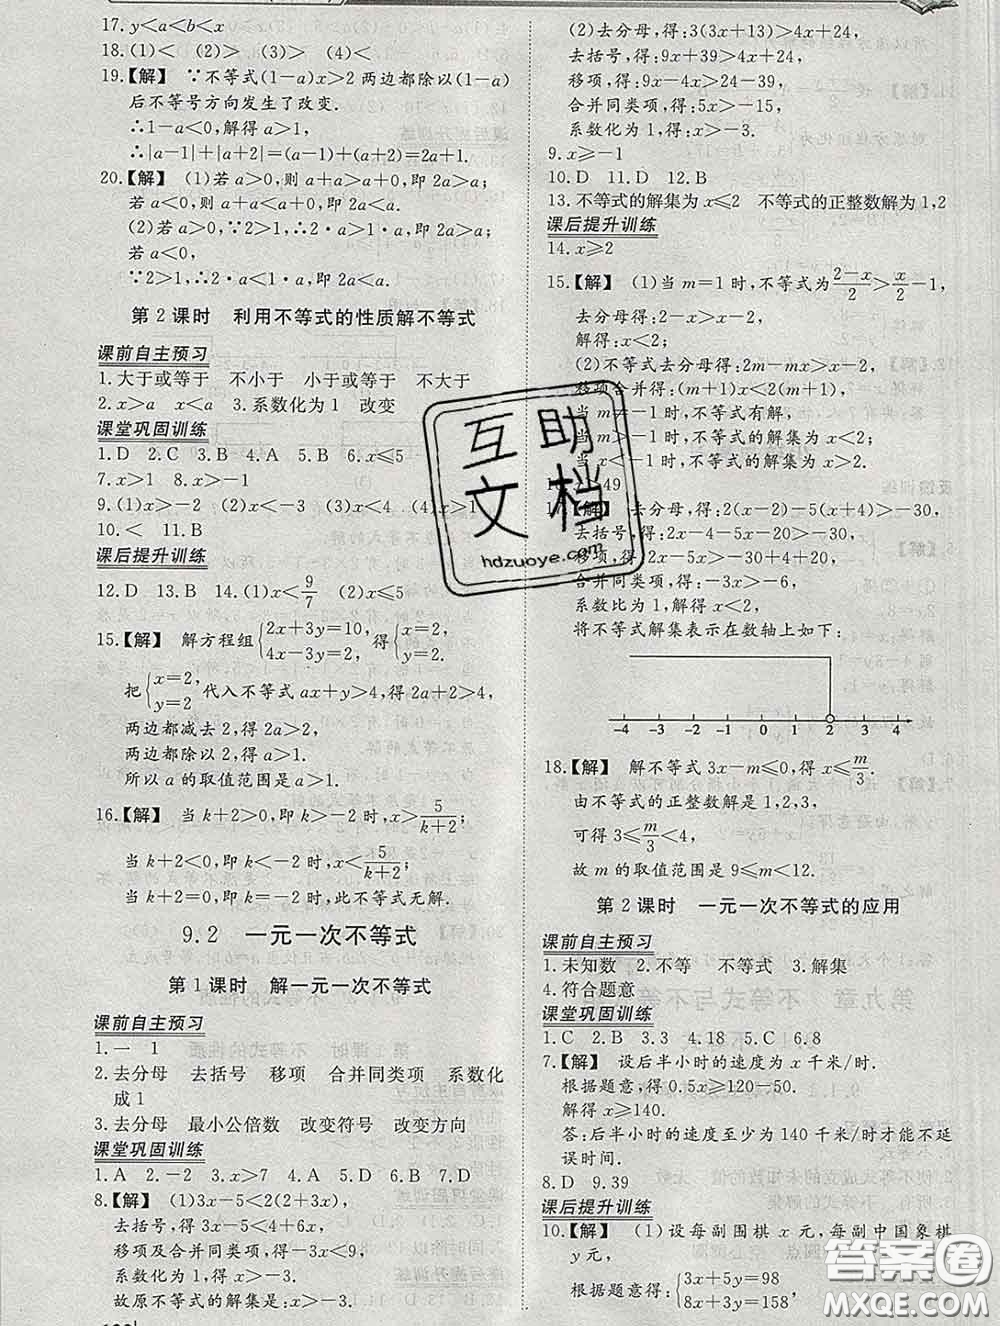 17. y<a<b<x
18. (1)< (2)> (3)> (4)<
19.【解】 ∵不等式(1-a)x>2两边都除以(1-a)
后不等号方向发生了改变.
∴1-a<0,解得a>1,
∴|a-1|+|a+2|=(a-1)+(a+2)=2a+1.
20.【解】 (1)若a>0,则a+a>a+0,即2a>a;
若a<0,则a+a<a+0,即2a<a.
(2)若a>0,∵2>1,∴2·a>1·a,即2a>a;
若a<0,
∵2>1,∴2·a<1·a,即2a<a.
第2课时 利用不等式的性质解不等式
课前自主预习
1.大于或等于 不小于 小于或等于 不大于
2.x>a x<a 3.系数化为1 改变
课堂巩固训练
1.D 2.C 3.B 4.A 5.B 6.x≤5
7.x>1 8.x>-1
9.(1)x>-2 (2)x<-3 (3)x<4 (4)x>1
10.< 11.B
课后提升训练
12.D 13.B 14.(1)x<9/7 (2)x≤5
15.【解】 解方程组{2x+3y=10, 4x-3y=2, 得{x=2, y=2.
把{x=2, y=2代入不等式ax+y>4,得2a+2>4,
两边都减去2,得2a>2,
两边都除以2,得a>1.
所以a的取值范围是a>1.
16.【解】 当k+2>0,即k>-2时,x>5/(k+2);
当k+2<0,即k<-2时,x<5/(k+2);
当k+2=0,即k=-2时,此不等式无解.
9.2 一元一次不等式
第1课时 解一元一次不等式
课前自主预习
1.一 1
2.去分母 去括号 移项 合并同类项 系数化
成1
3.去分母 最小公倍数 改变符号 改变方向
课堂巩固训练
1.A 2.-2 3.x>7 4.A 5.D 6.B 7.D
8.【解】 (1)3x-5<2(2+3x),
去括号,得3x-5<4+6x,
移项及合并同类项,得-3x<9,
系数化为1,得x>-3.
故原不等式的解集是:x>-3.
(2)去分母,得:3(3x+13)>4x+24,
去括号,得:9x+39>4x+24,
移项,得:9x-4x>24-39,
合并同类项,得:5x>-15,
系数化为1,得:x>-3.
9.x≥-1
10.D 11.D 12.B
13.不等式的解集为x≤2 不等式的正整数解为1,2
课后提升训练
14.x≥2
15.【解】 (1)当m=1时,不等式为(2-x)/2>x/2-1,
去分母得:2-x>x-2,
解得:x<2;
(2)不等式去分母得:2m-mx>x-2,
移项合并得:(m+1)x<2(m+1),
当m≠-1时,不等式有解,
当m>-1时,不等式的解集为x<2;
当m<-1时,不等式的解集为x>2.
49
17.【解】 去分母,得:2(x-2)-5(x+4)>-30,
去括号,得:2x-4-5x-20>-30,
移项,得:2x-5x>-30+4+20,
合并同类项,得:-3x>-6,
系数化为1,得:x<2,
将不等式解集表示在数轴上如下:
-4 -3 -2 -1 0 1 2 3 4
18.【解】 解不等式3x-m≤0,得x≤m/3.
由不等式的正整数解是1,2,3,
可得3≤m/3<4,
故m的取值范围是9≤m<12.
第2课时 一元一次不等式的应用
课前自主预习
1.未知数 2.不等 不等式 3.解集
4.符合题意
课堂巩固训练
1.C 2.B 3.3 4.18 5.C 6.8
7.【解】 设后半小时的速度为x千米/时.
根据题意,得0.5x≥120-50.
解得x≥140.
答:后半小时的速度至少为140千米/时才能不延
误时间.
8.D 9.39
课后提升训练
10.【解】 (1)设每副围棋x元,每副中国象棋
y元,
根据题意得:{3x+5y=98 8x+3y=158,
互助
文档
hdzuoye.com
答案圈
MXQE.COM